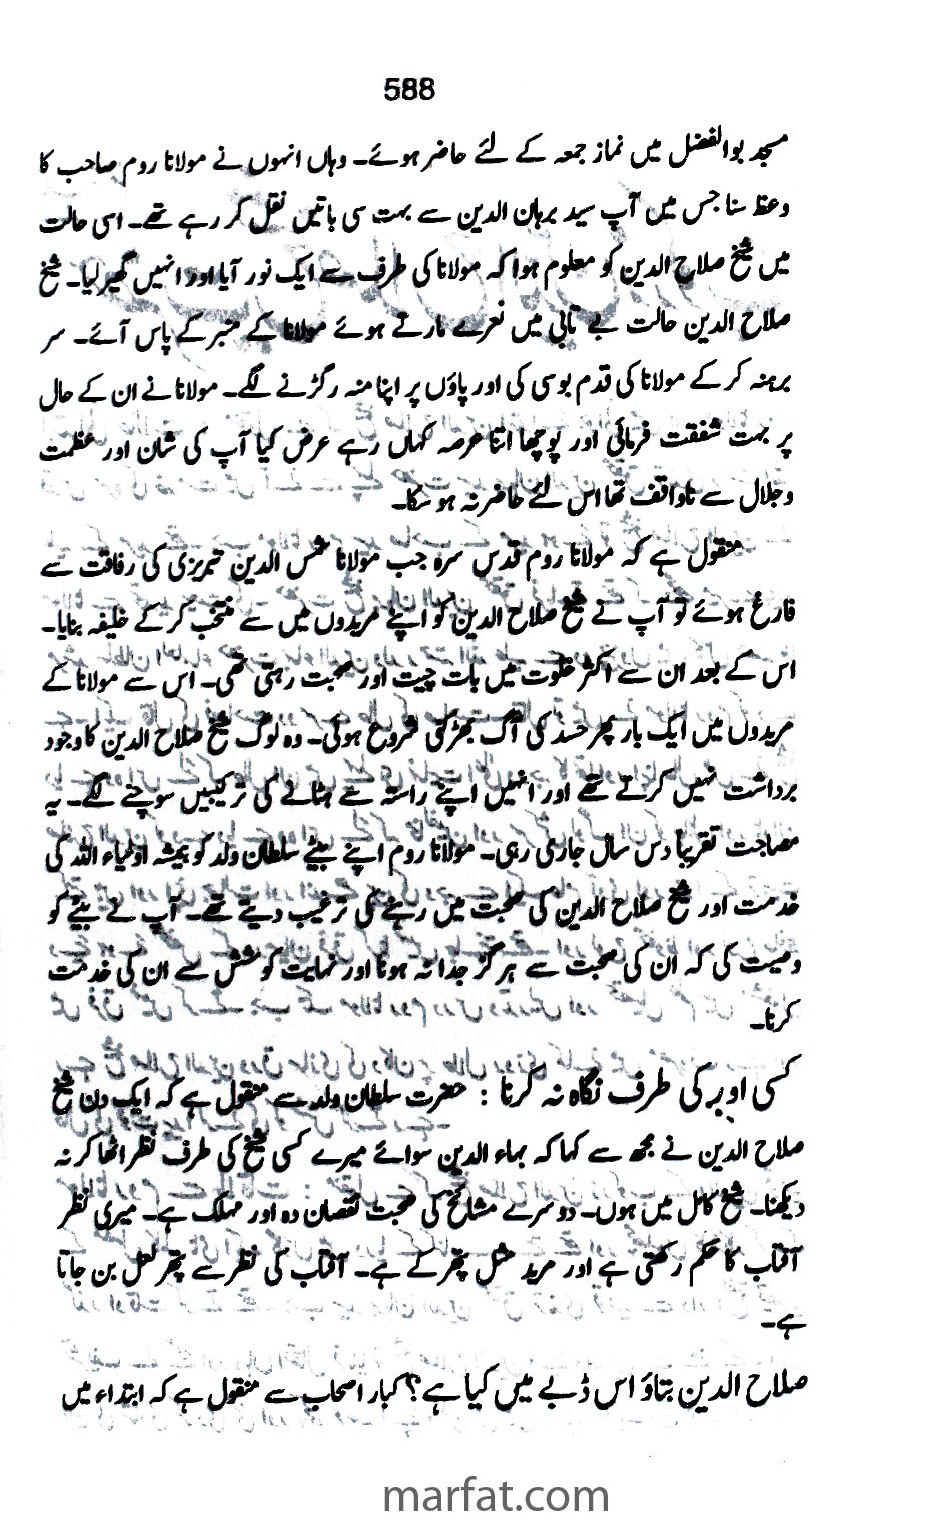 588
مسجد بوالفضل میں نماز جمعہ کے لئے حاضر ہوئے۔ وہاں انہوں نے مولانا روم صاحب کا
وعظ سنا جس میں آپ سید برہان الدین سے بہت سی باتیں نقل کر رہے تھے۔ اسی حالت
میں شیخ صلاح الدین کو معلوم ہوا کہ مولانا کی طرف سے ایک نور آیا اور انہیں گھیر لیا۔ شیخ
صلاح الدین حالت بے تابی میں نعرے مارتے ہوئے مولانا کے منبر کے پاس آئے۔ سر
برہنہ کر کے مولانا کی قدم بوسی کی اور پاؤں پر اپنا منہ رگڑنے لگے۔ مولانا نے ان کے حال
پر بہت شفقت فرمائی اور پوچھا اتنا عرصہ کہاں رہے عرض کیا آپ کی شان اور عظمت
و جلال سے ناواقف تھا اس لئے حاضر نہ ہو سکا۔
منقول ہے کہ مولانا روم قدس سرہ جب مولانا شمس الدین تبریزی کی رفاقت سے
فارغ ہوئے تو آپ نے شیخ صلاح الدین کو اپنے مریدوں میں سے منتخب کر کے خلیفہ بنایا۔
اس کے بعد ان سے اکثر خلوت میں بات چیت اور صحبت رہتی تھی۔ اس سے مولانا کے
مریدوں میں ایک بار پھر حسد کی آگ بھڑکنی شروع ہوئی۔ وہ لوگ شیخ صلاح الدین کا وجود
برداشت نہیں کرتے تھے اور انہیں اپنے راستہ سے ہٹانے کی ترکیبیں سوچنے لگے۔ یہ
مصاحبت تقریباً دس سال جاری رہی۔ مولانا روم اپنے بیٹے سلطان ولد کو ہمیشہ اولیاء اللہ کی
خدمت اور شیخ صلاح الدین کی صحبت میں رہنے کی ترغیب دیتے تھے۔ آپ نے بیٹے کو
وصیت کی کہ ان کی صحبت سے ہرگز جدا نہ ہونا اور نہایت کوشش سے ان کی خدمت
کرنا۔
کسی اور کی طرف نگاہ نہ کرنا : حضرت سلطان ولد سے منقول ہے کہ ایک دن شیخ
صلاح الدین نے مجھ سے کہا کہ بہاء الدین سوائے میرے کسی شیخ کی طرف نظر اٹھا کر نہ
دیکھنا۔ شیخ کامل میں ہوں۔ دوسرے مشائخ کی صحبت نقصان دہ اور مہلک ہے۔ میری نظر
آفتاب کا حکم رکھتی ہے اور مرید مثل پتھر کے ہے۔ آفتاب کی نظر سے پتھر لعل بن جاتا
ہے۔
صلاح الدین بتاؤ اس ڈبے میں کیا ہے؟ کبار اصحاب سے منقول ہے کہ ابتداء میں
marfat.com